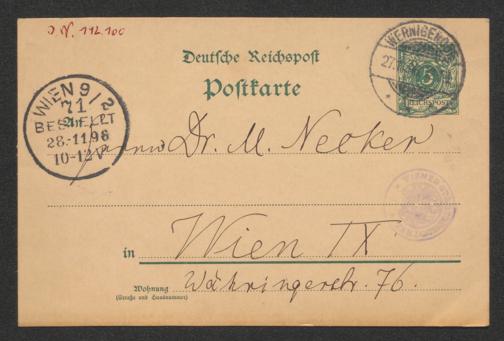 J.N. 112.100
Deutsche Reichspost
Postkarte
WERNIGERODE
27.11.
5
REICHSPOST
WIEN 9/2
71
BESTELLT
28.11.98
10-12V
Herrn Dr. M. Necker
in Wien IX
Währingerstr. 76.
Wohnung
(Straße und Hausnummer)